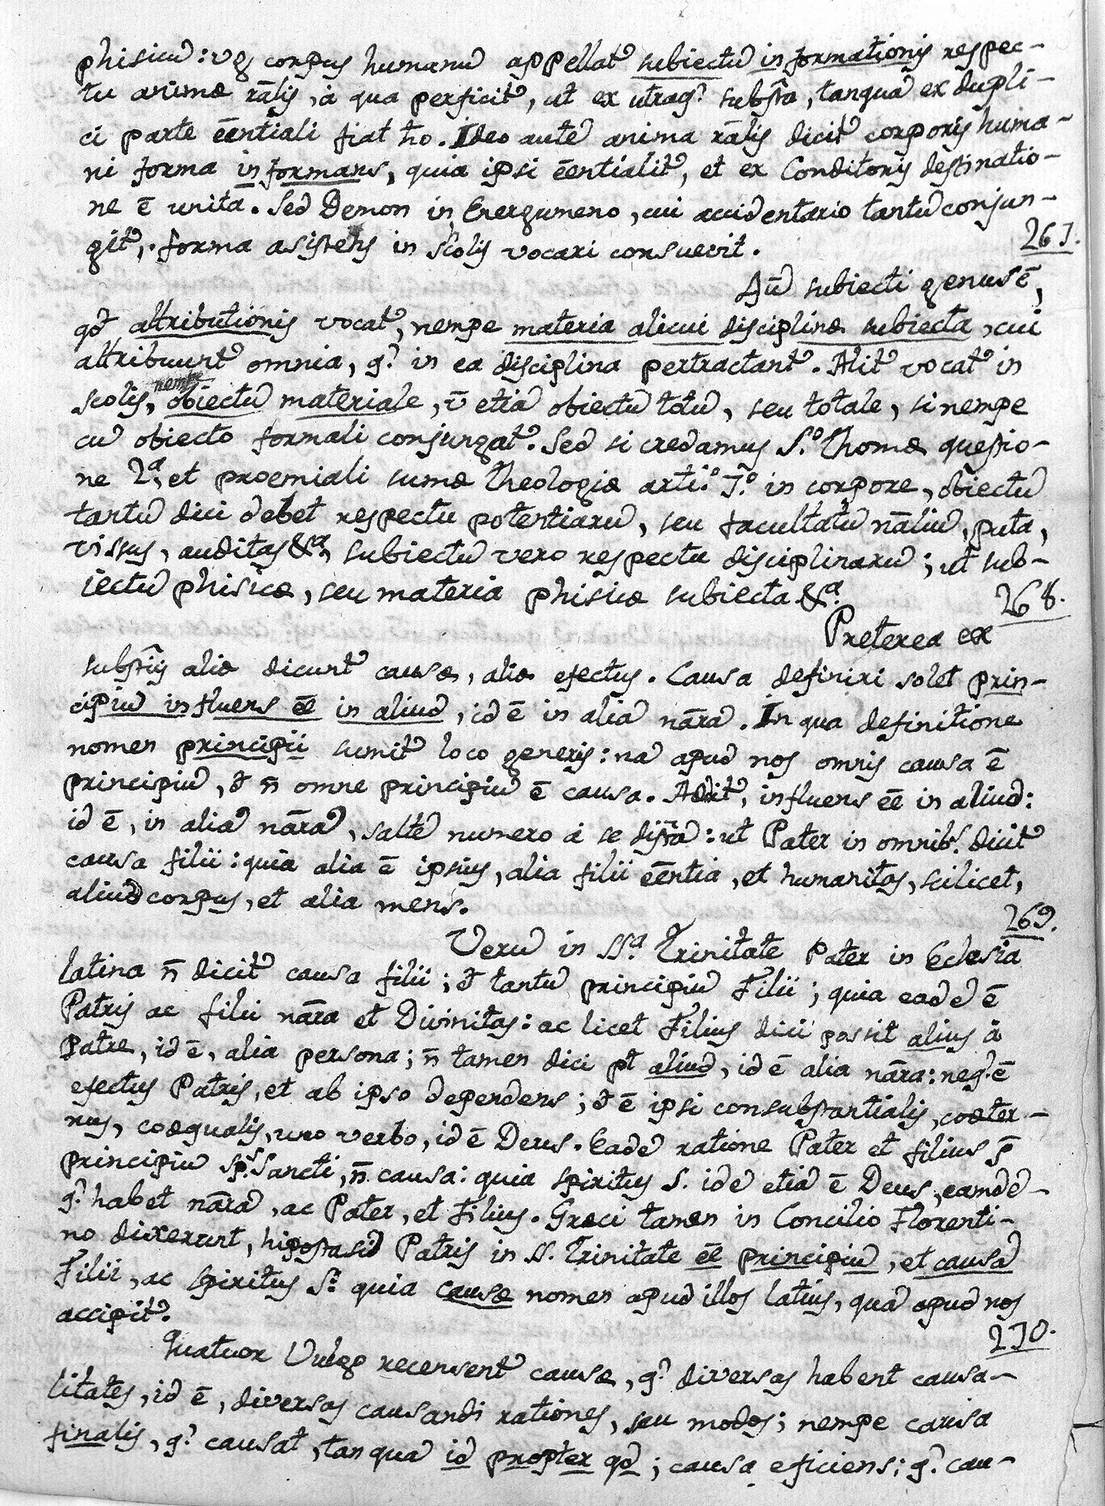 phisicũ: v g corpus humanũ appellatr subiectũ informationis respec-
tu animæ rãlis, à qua perficitr, ut ex utraq? substã, tanquã ex dupli-
ci parte ẽentiali fiat ho. Ideo autẽ anima rãlis dicitr corporis huma-
ni forma informans, quia ipsi ẽentialitr, et ex Conditoris destinatio-
ne ẽ unita. Sed Demon in Energumeno, cui accidentario tantũ conjun-
gitr, forma asistens in scolis vocari consuevit.
267.
Aliũ subiecti genus ẽ,
qd attributionis vocatr, nempe materia alicui disciplinæ subiecta, cui
attribuuntr omnia, q? in ea disciplina pertractantr. Alitr vocatr in
scolis, nempe obiectũ materiale, v̄ etiã obiectũ totũ, seu totale, si nempe
cũ obiecto formali conjungatr. Sed si credamus S.o Thomæ questio-
ne 1.a, et proemiali sumæ theologiæ arti.o 7.o in corpore, obiectũ
tantũ dici debet respectu potentiarũ, seu facultatũ nãliũ, puta,
visus, auditus &a, subiectũ vero respectu disciplinarũ; ut sub-
iectũ phisicæ, seu materia phisicæ subiecta &a.
268.
Preterea ex
substiis aliæ dicuntr causæ, aliæ efectus. Causa definiri solet prin-
cipiũ influens ẽe in aliud, id ẽ in aliã nãrã. In qua definitione
nomen principii sumitr loco generis: nã apud nos omnis causa ẽ
principiũ, sd n̄ omne principiũ ẽ causa. Additr, influens ẽe in aliud:
id ẽ, in aliã nãrã, saltẽ numero à se distã: ut Pater in omnibs. dicitr
causa filii: quia alia ẽ ipsius, alia filii ẽentia, et humanitas, scilicet,
aliud corpus, et alia mens.
269.
Verũ in SS.a Trinitate Pater in Eclesia
latina n̄ dicitr causa filii; sd tantũ principiũ Filii; quia eadẽ ẽ
Patris ac filii nãra et Divinitas: ac licet Filius dici possit alius à
Patre, id ẽ, alia persona; n̄ tamen dici pt aliud, id ẽ alia nãra: neq. ẽ
efectus Patris, et ab ipso dependens; sd ẽ ipsi consubstantialis, coæter-
nus, coæqualis, uno verbo, id ẽ Deus. Eadẽ ratione Pater et filius st
principiũ Sps Sancti, n̄ causa: quia Spiritus S. idẽ etiã ẽ Deus, eamdẽ-
q? habet nãrã, ac Pater, et Filius. Græci tamen in Concilio Florenti-
no dixerunt, hipostasid Patris in SS. Trinitate ẽe principiũ, et causã
Filii, ac Spiritus S.i quia causæ nomen apud illos latius, quã apud nos
accipitr.
270.
Quatuor Vulgo recensentr causæ, q? diversas habent causa-
litates, id ẽ, diversas causandi rationes, seu modos; nempe causa
finalis, q? causat, tanquã id propter qd; causa eficiens; q? cau-